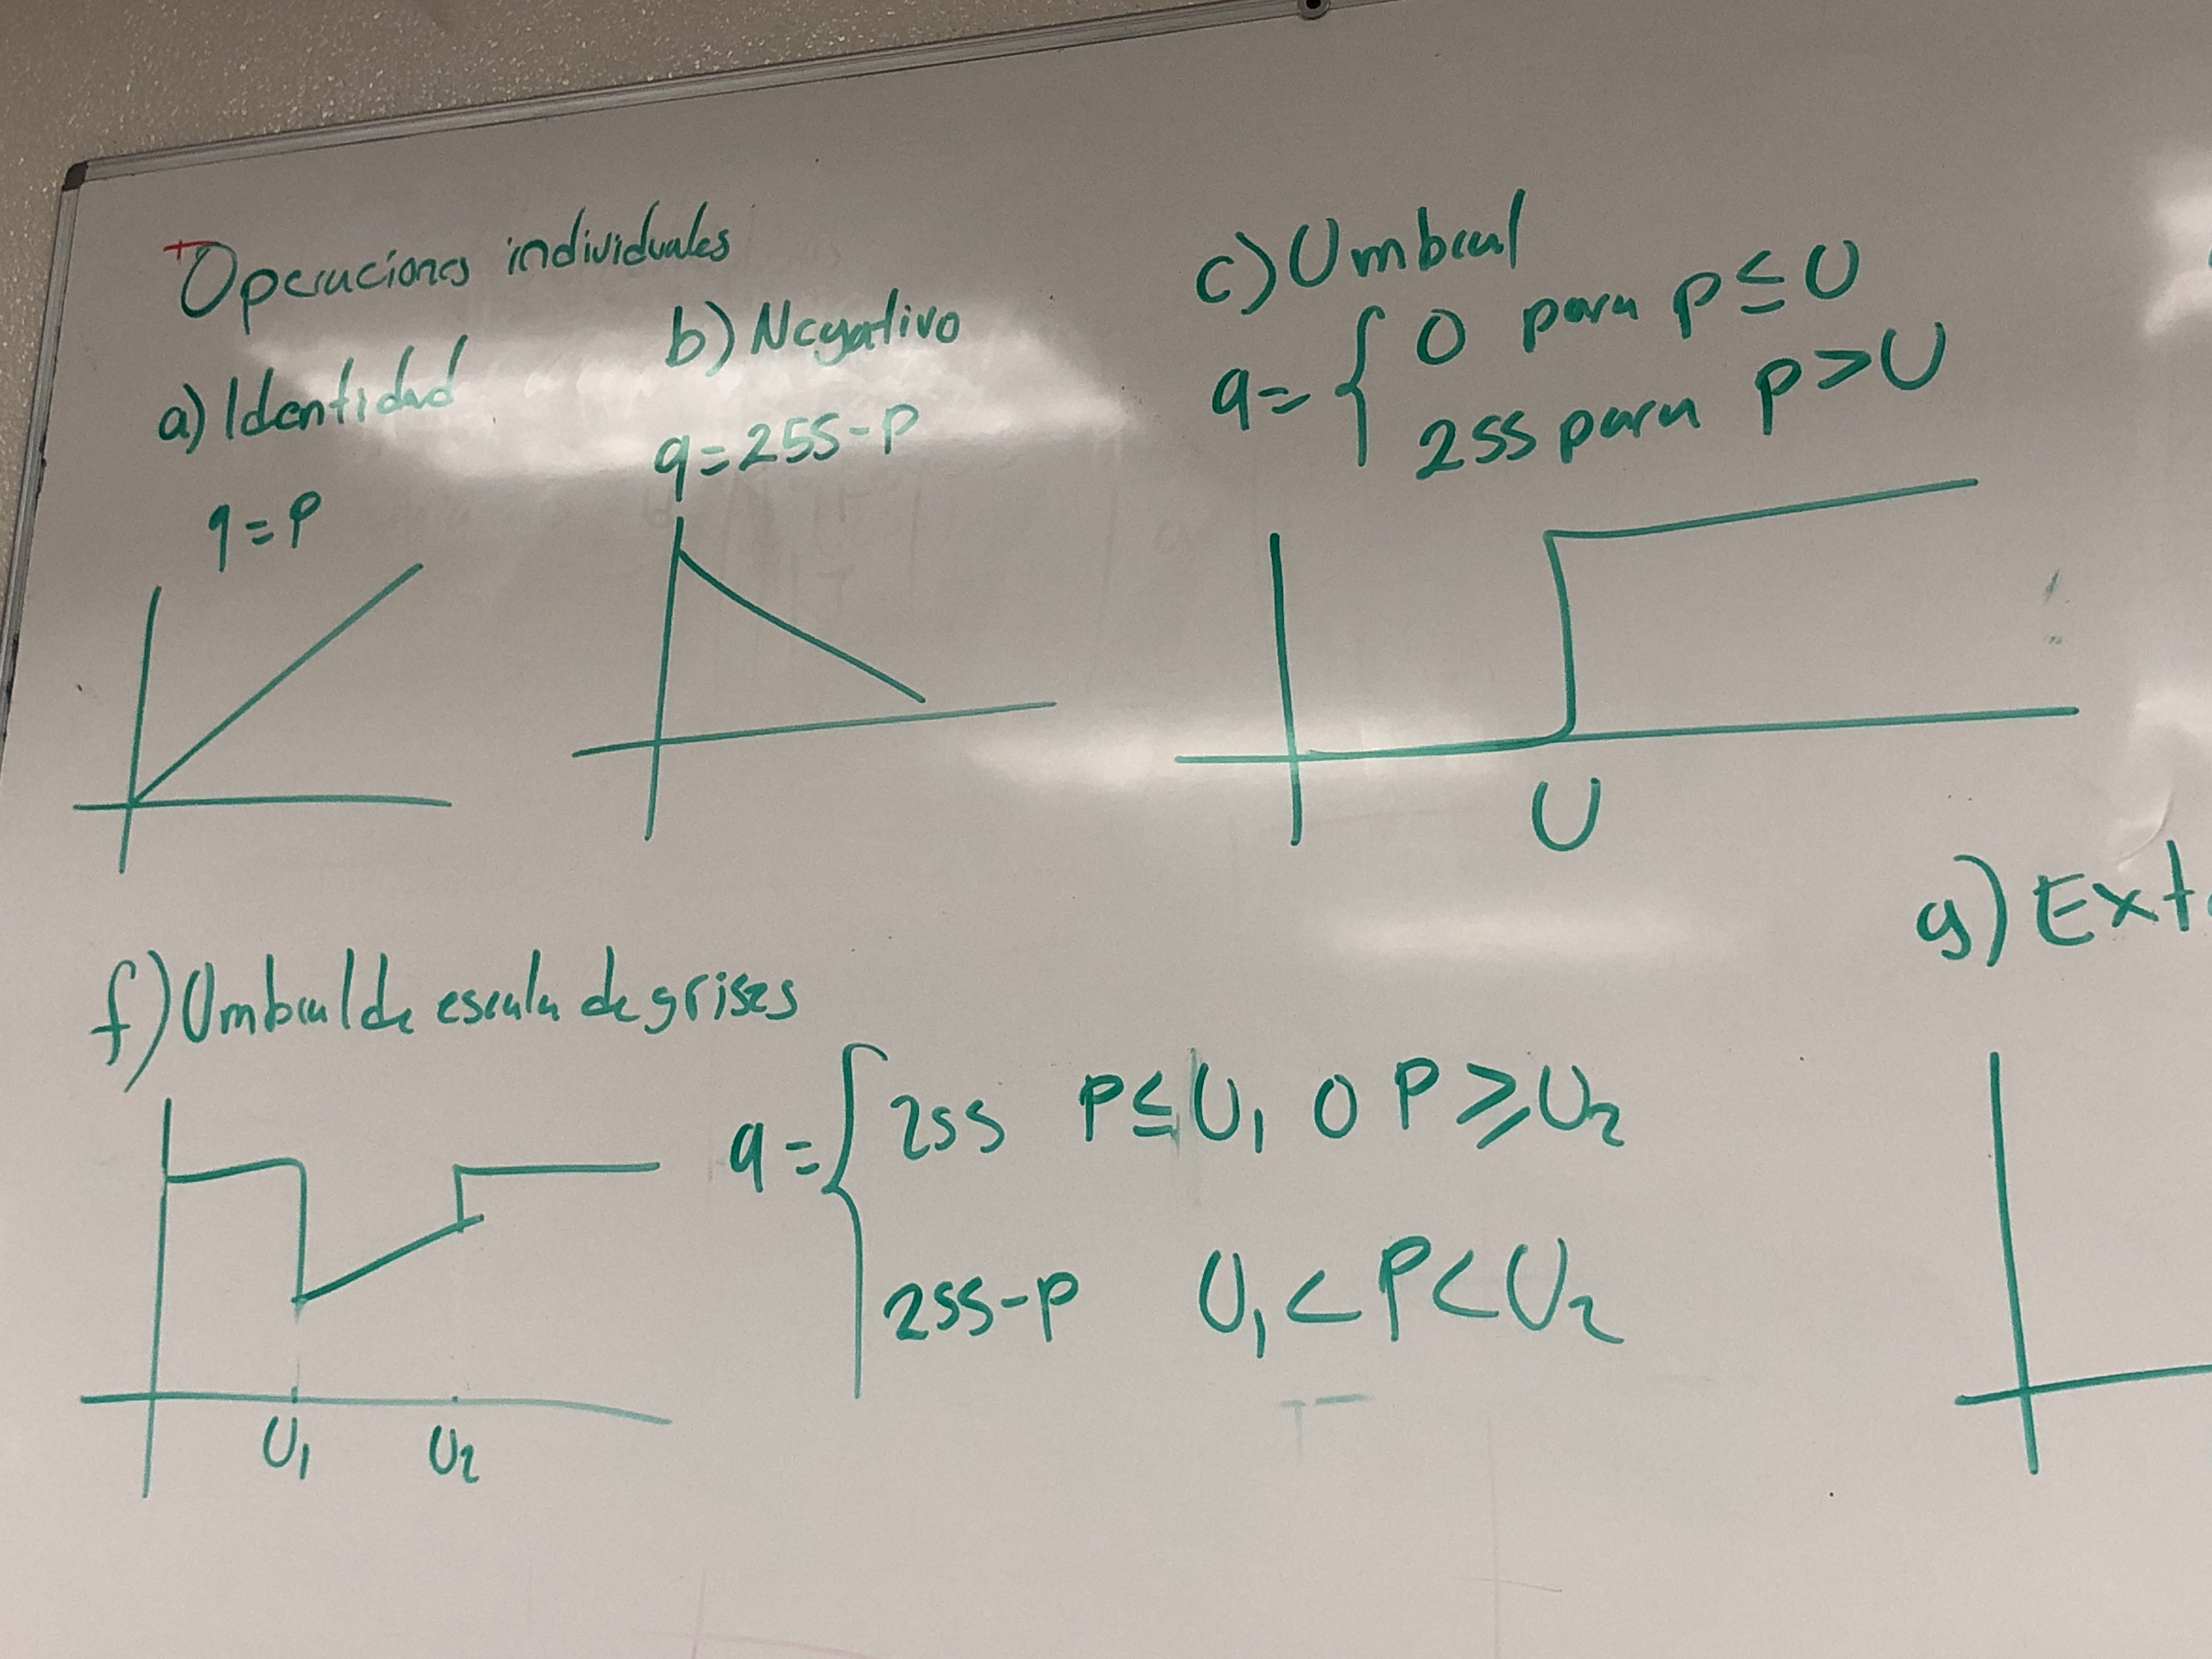 Operaciones individuales
a) Identidad
q=p
b) Negativo
q=255-p
c) Umbral
q= { 0 para p≤U
255 para p>U
U
f) Umbral de escala de grises
U₁ U₂
q= { 255 P≤U₁ o P≥U₂
255-p U₁<P<U₂
g) Ext